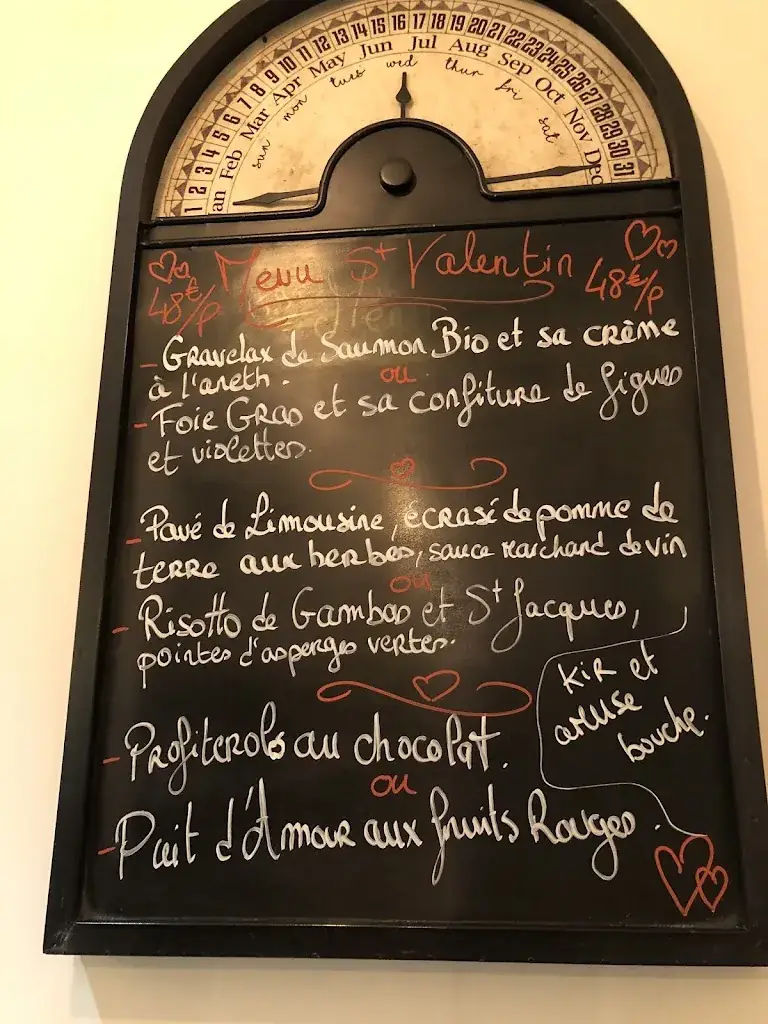 1 2 3 4 5 6 7 8 9 10 11 12 13 14 15 16 17 18 19 20 21 22 23 24 25 26 27 28 29 30 31
an Feb Mar Apr May Jun Jul Aug Sep Oct Nov Dec
sun mon tues wed thur fri sat
Menu St Valentin
48€/p 48€/p
- Gravelax de Saumon Bio et sa crème
à l'aneth.
ou
- Foie Gras et sa confiture de figues
et violettes.
- Pavé de Limousine, écrasé de pomme de
terre aux herbes, sauce marchand de vin
ou
- Risotto de Gambas et St Jacques,
pointes d'asperges vertes.
Kir et
amuse
bouche.
- Profiterols au chocolat.
ou
- Puit d'Amour aux fruits Rouges.